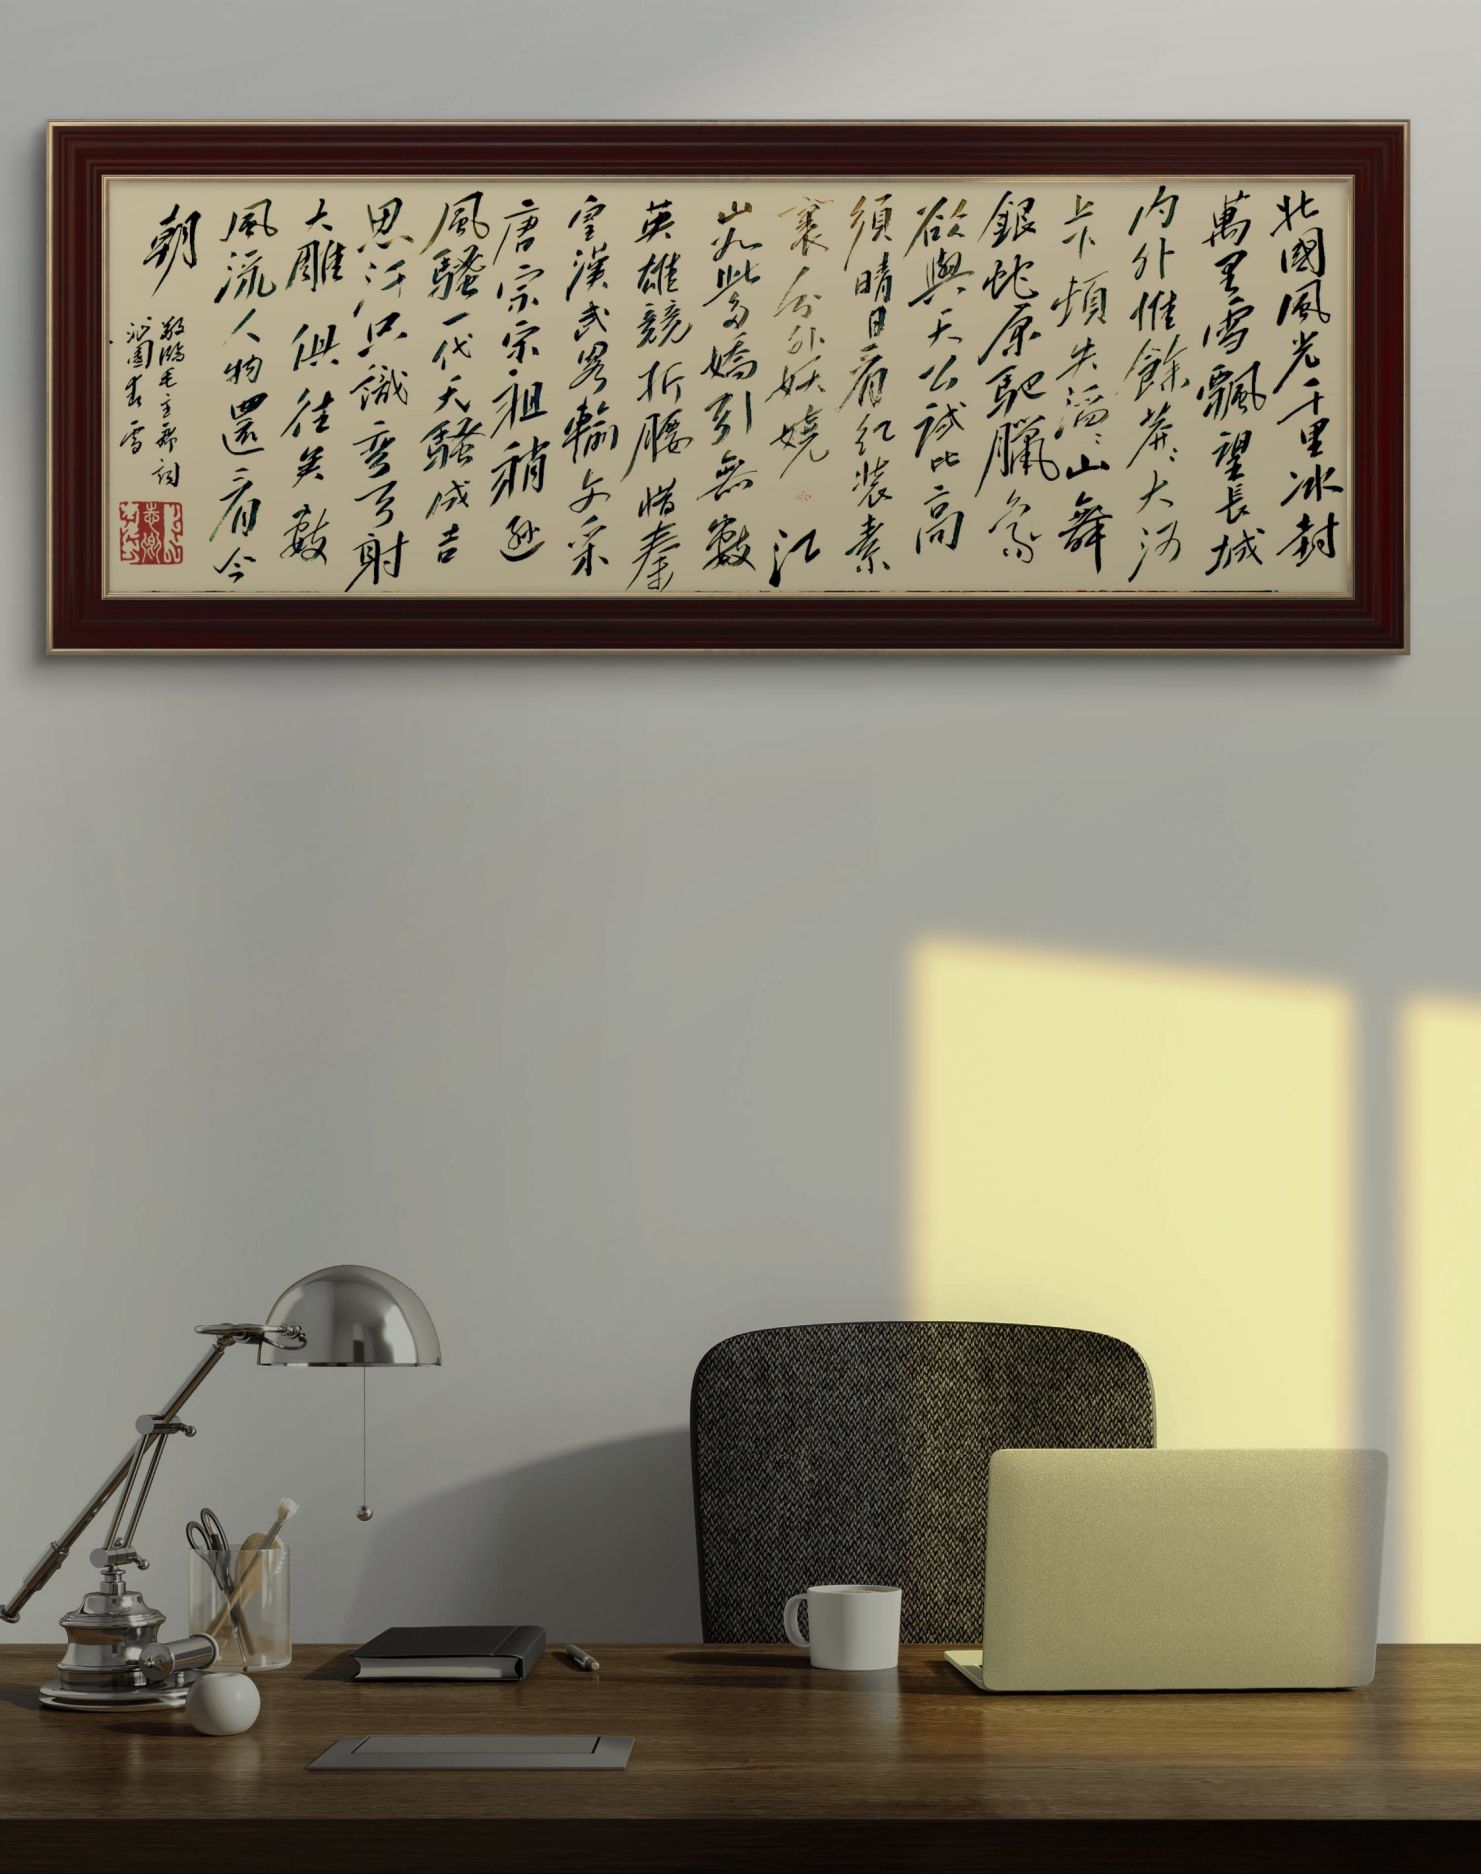 北國風光千里冰封
萬里雪飄望長城
内外惟餘莽〻大河
上下頓失滔〻山舞
銀蛇原馳臘象
欲與天公試比高
須晴日看红装素
裹分外妖嬈江
山如此多嬌引無數
英雄競折腰惜秦
皇漢武畧輸文采
唐宗宋祖稍遜
風騷一代天騷成吉
思汗只識彎弓射
大雕俱往矣數
風流人物還看今
朝
敬錄毛主席詞
沁園春雪